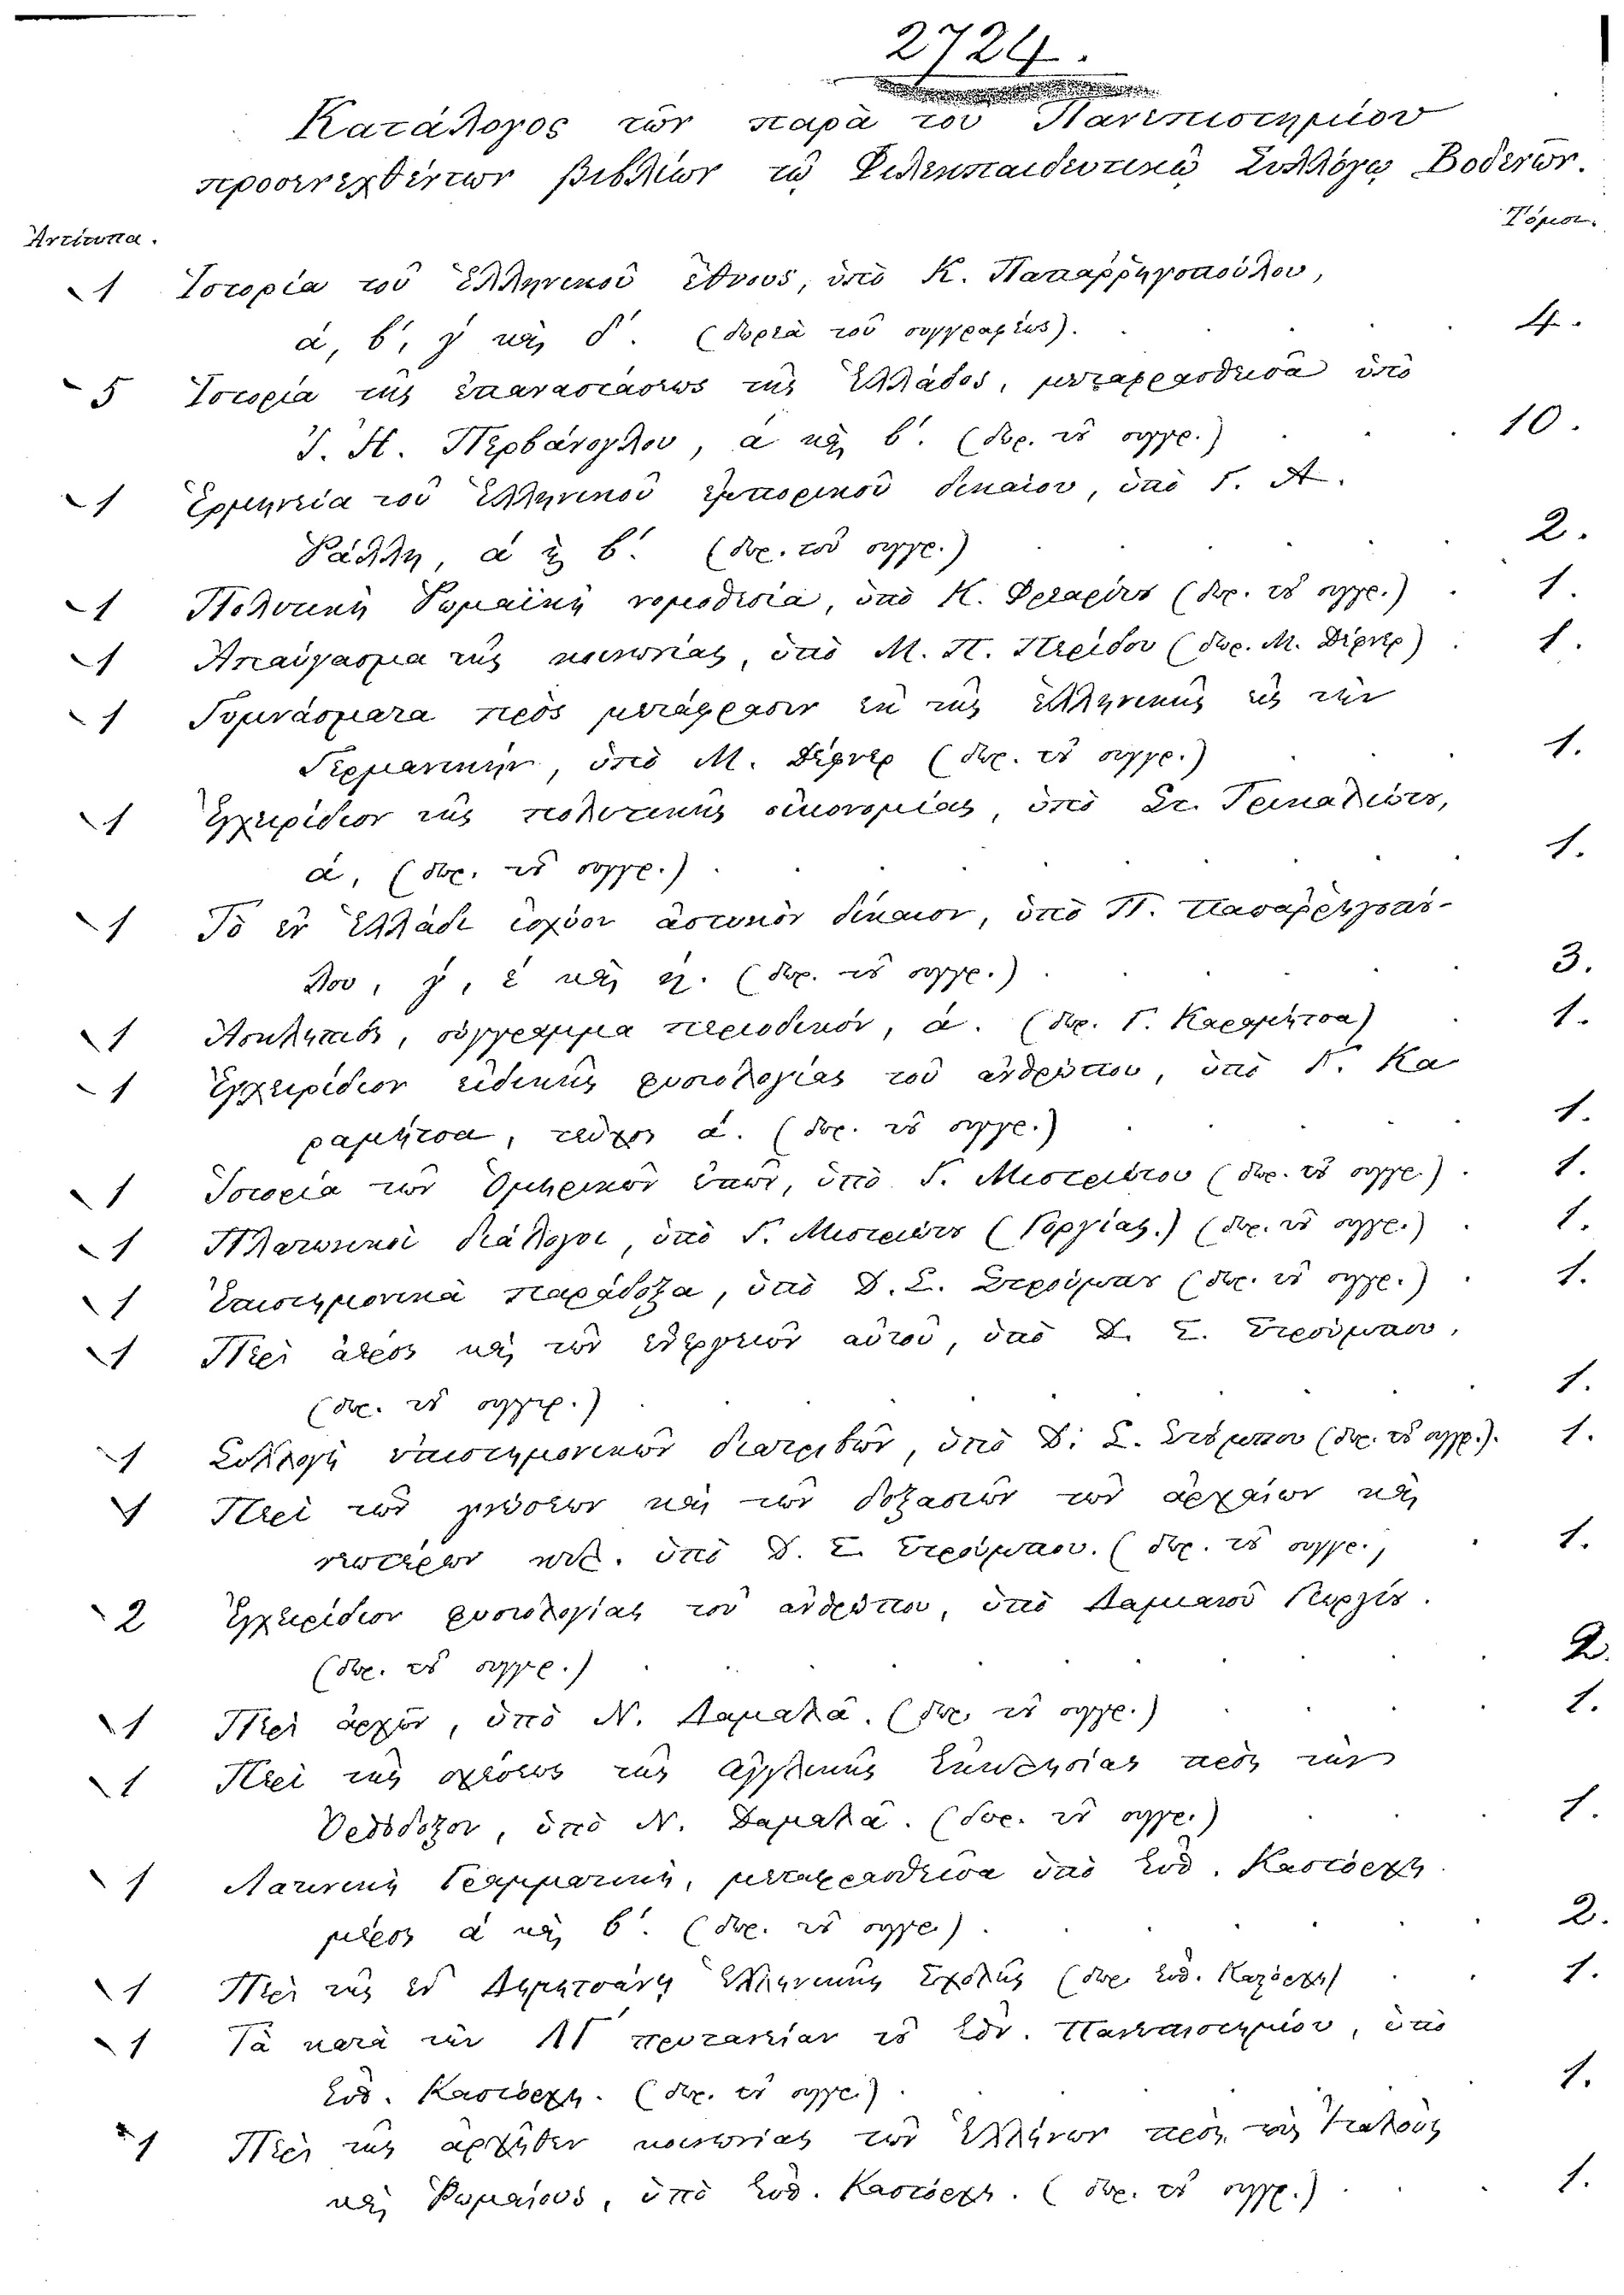 2724.
Κατάλογος τῶν παρὰ του Πανεπιστημίου
προσενεχθέντων βιβλίων τῷ Φιλεκπαιδευτικῷ Συλλόγῳ Βοδενῶν.
Ἀντίτυπα. Τόμοι.
1 Ἱστορία τοῦ Ἑλληνικοῦ ἔθνους, ὑπὸ Κ. Παπαῤῥηγοπούλου,
ά, β΄, γ́ καὶ δ΄. (δωρεὰ τοῦ συγγραφέως). 4.
5 Ἱστορία τῆς ἐπαναστάσεως τῆς Ἑλλάδος, μεταφρασθεῖσα ὑπὸ
Ἰ. Π. Περβάνογλου, ά καὶ β΄. (δωρ. τȣ͂ συγγρ.) 10.
1 Ἑρμηνεία τοῦ Ἑλληνικοῦ ἐμπορικοῦ δικαίου, ὑπὸ Γ. Α.
Ῥάλλη, ά ϗ β΄. (δωρ. τοῦ συγγρ.) 2.
1 Πολιτικὴ Ῥωμαϊκὴ νομοθεσία, ὑπὸ Κ. Φρεαρίτȣ (δωρ. τȣ͂ συγγρ.) 1.
1 Ἀπαύγασμα τῆς κοινωνίας, ὑπὸ Μ. Π. (δωρ. Μ. Δέφνερ) 1.
1 Γυμνάσματα πρὸς μετάφρασιν ἐκ τῆς Ἑλληνικῆς εἰς τὴν
Γερμανικὴν, ὑπὸ Μ. Δέφνερ (δωρ. τȣ͂ συγγρ.) 1.
1 Ἐγχειρίδιον τῆς πολιτικῆς οἰκονομίας, ὑπὸ Στ. Τρικαλιώτȣ,
ά, (δωρ. τȣ͂ συγγρ.) 1.
1 Τὸ ἐν Ἑλλάδι ἰσχῦον ἀστυκὸν δίκαιον, ὑπὸ Π. Παπαῤῥηγοπού-
λου, γ́, έ καὶ ή. (δωρ. τȣ͂ συγγρ.) 3.
1 Ἀσκληπιὸς, σύγγραμμα περιοδικὸν, ά. (δωρ. Γ. Καραμήτσα) 1.
1 Ἐγχειρίδιον εἰδικῆς φυσιολογίας τοῦ ἀνθρώπου, ὑπὸ Γ. Κα
ραμήτσα, τεῦχος ά. (δωρ. τȣ͂ συγγρ.) 1.
1 Ἱστορία τῶν Ὁμηρικῶν ἐπῶν, ὑπὸ Γ. Μιστριώτου (δωρ. τȣ͂ συγγρ.) 1.
1 Πλατωνικοὶ διάλογοι, ὑπὸ Γ. Μιστριώτȣ (Γοργίας.) (δωρ. τȣ͂ συγγρ.) 1.
1 Ἐπιστημονικὰ παράδοξα, ὑπὸ Δ. Σ. Στρούμπου (δωρ. τȣ͂ συγγρ.) 1.
1 Περὶ ἀέρος καὶ τῶν ἐνεργειῶν αὐτοῦ, ὑπὸ Δ. Σ. Στρούμπου,
(δωρ. τȣ͂ συγγρ.) 1.
1 Συλλογὴ ἐπιστημονικῶν διατριβῶν, ὑπὸ Δ. Σ. Στρȣ́μπου (δωρ. τȣ͂ συγγρ.). 1.
1 Περὶ τῶν γνώσεων καὶ τῶν δοξασιῶν τῶν ἀρχαίων καὶ
νεωτέρων κτλ. ὑπὸ Δ. Σ. Στρούμπου. (δωρ. τȣ͂ συγγρ.) 1.
2 Ἐγχειρίδιον φυσιολογίας τοῦ ἀνθρώπου, ὑπὸ Δαμιανοῦ Γεωργίȣ.
(δωρ. τȣ͂ συγγρ.) 2.
1 Περὶ ἀρχῶν, ὑπὸ Ν. Δαμαλᾶ. (δωρ. τȣ͂ συγγρ.) 1.
1 Περὶ τῆς σχέσεως τῆς Ἀγγλικῆς Ἐκκλησίας πρὸς τὴν
Ὀρθόδοξον, ὑπὸ Ν. Δαμαλᾶ. (δωρ. τȣ͂ συγγρ.) 1.
1 Λατινικὴ Γραμματικὴ, μεταφρασθεῖσα ὑπὸ Εὐθ. Καστόρχη
μέρος ά καὶ β΄. (δωρ. τȣ͂ συγγρ.) 2.
1 Περὶ τῆς ἐν Δημητσάνῃ Ἑλληνικῆς Σχολῆς (δωρ. Εὐθ. Καστόρχη) 1.
1 Τὰ κατὰ τὴν ΛΓ΄ πρυτανείαν τȣ͂ Ἐθν. Πανεπιστημίου, ὑπὸ
Εὐθ. Καστόρχη. (δωρ. τȣ͂ συγγρ.) 1.
1 Περὶ τῆς ἀρχῆθεν κοινωνίας τῶν Ἑλλήνων πρὸς τοὺς Ἰταλοὺς
καὶ Ῥωμαίους, ὑπὸ Εὐθ. Καστόρχη. (δωρ. τȣ͂ συγγρ.) 1.